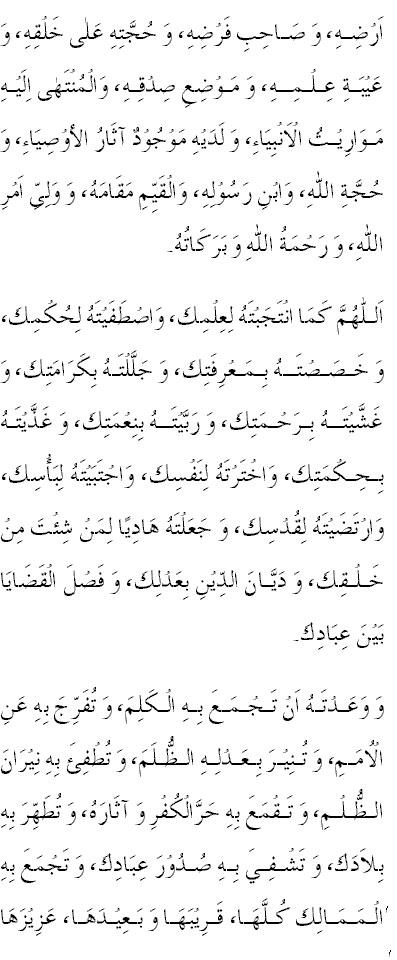 اَرْضِهِ، وَ صَاحِبِ فَرْضِهِ، وَ حُجَّتِهِ عَلٰى خَلْقِهِ، وَ
عَيْبَةِ عِلْمِهِ، وَ مَوْضِعِ صِدْقِهِ، وَالْمُنْتَهٰى اِلَيْهِ
مَوَارِيْثُ الْاَنْبِيَاءِ، وَ لَدَيْهِ مَوْجُوْدٌ آثَارُ الأَوْصِيَاءِ، وَ
حُجَّةِ اللهِ، وَابْنِ رَسُوْلِهِ، وَالْقَيِّمِ مَقَامَهُ، وَ وَلِيِّ اَمْرِ
اللهِ، وَ رَحْمَةُ اللهِ وَ بَرَكَاتُهُ۔
اَللّٰهُمَّ كَمَا انْتَجَبْتَهُ لِعِلْمِكَ، وَاصْطَفَيْتَهُ لِحُكْمِكَ،
وَ خَصَصْتَهُ بِمَعْرِفَتِكَ، وَ جَلَّلْتَهُ بِكَرَامَتِكَ، وَ
غَشَّيْتَهُ بِرَحْمَتِكَ، وَ رَبَّيْتَهُ بِنِعْمَتِكَ، وَ غَذَّيْتَهُ
بِحِكْمَتِكَ، وَاخْتَرْتَهُ لِنَفْسِكَ، وَاجْتَبَيْتَهُ لِبَأْسِكَ،
وَارْتَضَيْتَهُ لِقُدْسِكَ، وَ جَعَلْتَهُ هَادِيًا لِمَنْ شِئْتَ مِنْ
خَلْقِكَ، وَ دَيَّانَ الدِّيْنِ بِعَدْلِكَ، وَ فَصْلَ الْقَضَايَا
بَيْنَ عِبَادِكَ۔
وَ وَعَدْتَهُ اَنْ تَجْمَعَ بِهِ الْكَلِمَ، وَ تُفَرِّجَ بِهِ عَنِ
الْاُمَمِ، وَ تُنِيْرَ بِعَدْلِهِ الظُّلَمَ، وَ تُطْفِئَ بِهِ نِيْرَانَ
الظُّلْمِ، وَ تَقْمَعَ بِهِ حَرَّالْكُفْرِ وَ آثَارَهُ، وَ تُطَهِّرَ بِهِ
بِلَادَكَ، وَ تَشْفِيَ بِهِ صُدُوْرَ عِبَادِكَ، وَ تَجْمَعَ بِهِ
الْمَمَالِكَ كُلَّهَا، قَرِيْبَهَا وَ بَعِيْدَهَا، عَزِيْزَهَا